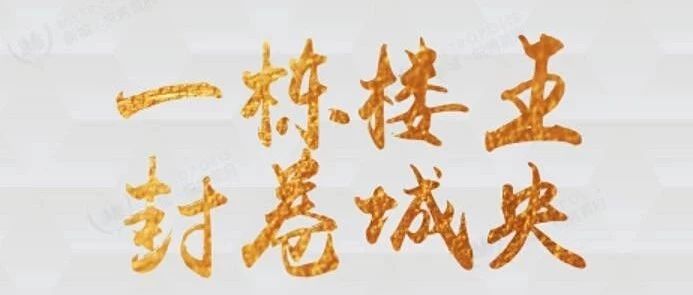 一栋楼王
封卷城央